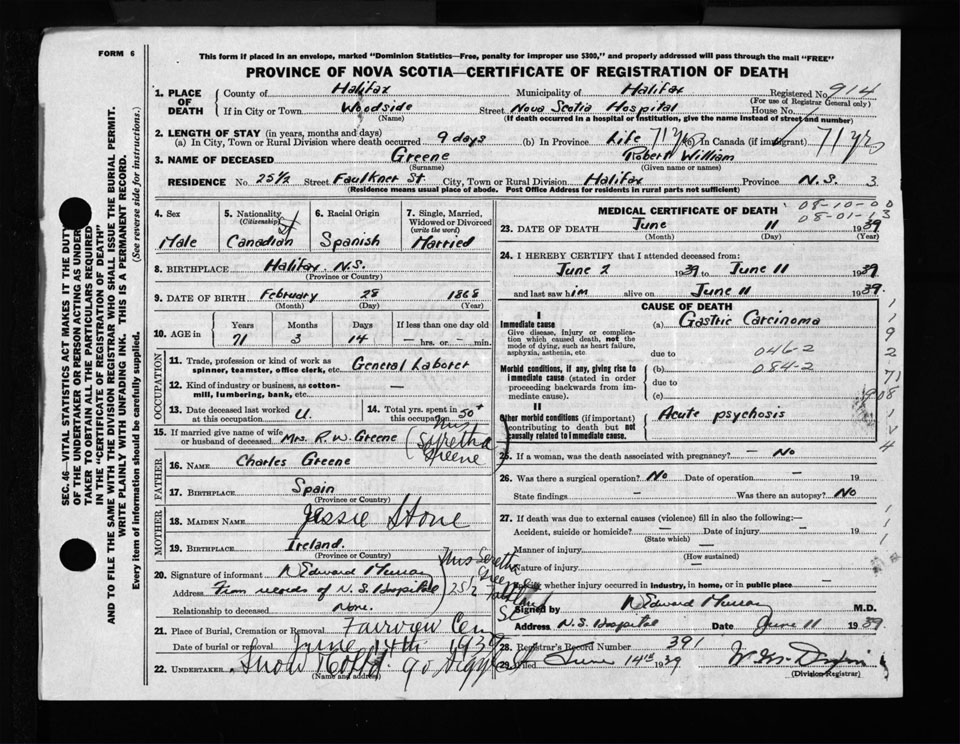 FORM 6
This form if placed in an envelope, marked "Dominion Statistics—Free, penalty for improper use $300," and properly addressed will pass through the mail "FREE"
PROVINCE OF NOVA SCOTIA—CERTIFICATE OF REGISTRATION OF DEATH
SEC. 46—VITAL STATISTICS ACT MAKES IT THE DUTY
OF THE UNDERTAKER OR PERSON ACTING AS UNDER
TAKER TO OBTAIN ALL THE PARTICULARS REQUIRED
IN THE "CERTIFICATE OF REGISTRATION OF DEATH"
AND TO FILE THE SAME WITH THE DIVISION REGISTRAR WHO SHALL ISSUE THE BURIAL PERMIT.
WRITE PLAINLY WITH UNFADING INK. THIS IS A PERMANENT RECORD.
Every item of information should be carefully supplied. (See reverse side for instructions.)
1. PLACE OF DEATH County of Halifax Municipality of Halifax Registered No 914
(For use of Registrar General only)
If in City or Town Woodside Street Nova Scotia Hospital House No.
(Name) (If death occurred in a hospital or institution, give the name instead of street and number)
2. LENGTH OF STAY (in years, months and days)
(a) In City, Town or Rural Division where death occurred 9 days (b) In Province Life 71 yrs (c) In Canada (if immigrant) 71 yrs
3. NAME OF DECEASED Greene Robert William
(Surname) (Given name or names)
RESIDENCE No. 25½ Street Faulkner St. City, Town or Rural Division Halifax Province N.S. 3
(Residence means usual place of abode. Post Office Address for residents in rural parts not sufficient)
4. Sex Male
5. Nationality (Citizenship) Canadian
6. Racial Origin Spanish
7. Single, Married, Widowed or Divorced (write the word) Married
8. BIRTHPLACE Halifax N.S.
(Province or Country)
9. DATE OF BIRTH February 28 1868
(Month) (Day) (Year)
10. AGE in Years Months Days If less than one day old
71 3 14 — hrs. or — min.
OCCUPATION
11. Trade, profession or kind of work as spinner, teamster, office clerk, etc. General Laborer
12. Kind of industry or business, as cotton-mill, lumbering, bank, etc. —
13. Date deceased last worked at this occupation U.
14. Total yrs. spent in this occupation 50+
15. If married give name of wife or husband of deceased Mrs. R. W. Greene
FATHER
16. NAME Charles Greene
17. BIRTHPLACE Spain
(Province or Country)
MOTHER
18. MAIDEN NAME Jessie Stone
19. BIRTHPLACE Ireland.
(Province or Country)
20. Signature of informant N Edward Murray
Address From records of N. S. Hospital
Relationship to deceased None.
21. Place of Burial, Cremation or Removal Fairview Cem
Date of burial or removal June 14th 1939
22. UNDERTAKER Snow
(Name and address)
MEDICAL CERTIFICATE OF DEATH
08-10-00
08-01-13
23. DATE OF DEATH June 11 1939
(Month) (Day) (Year)
24. I HEREBY CERTIFY that I attended deceased from:
June 2 1939 to June 11 1939
and last saw him alive on June 11 1939.
CAUSE OF DEATH
I
Immediate cause
Give disease, injury or complication which caused death, not the mode of dying, such as heart failure, asphyxia, asthenia, etc
(a) Gastric Carcinoma
due to 046-2
Morbid conditions, if any, giving rise to immediate cause (stated in order proceeding backwards from immediate cause).
(b) 084-2
due to
(c)
II
Other morbid conditions (if important) contributing to death but not causally related to immediate cause.
Acute psychosis
25. If a woman, was the death associated with pregnancy? — No
26. Was there a surgical operation? No Date of operation — 19
State findings — Was there an autopsy? No
27. If death was due to external causes (violence) fill in also the following:—
Accident, suicide or homicide? — Date of injury — 19
(State which)
Manner of injury —
(How sustained)
Nature of injury —
Specify whether injury occurred in industry, in home, or in public place —
Signed by N Edward Murray M.D.
Address N.S. Hospital Date June 11 1939
28. Registrar's Record Number 391
29. Filed June 14th 1939
(Division Registrar)